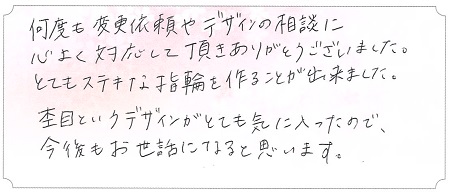 何度も変更依頼やデザインの相談に
心よく対応して頂きありがとうございました。
とてもステキな指輪を作ることが出来ました。
杢目というデザインがとても気に入ったので、
今後もお世話になると思います。